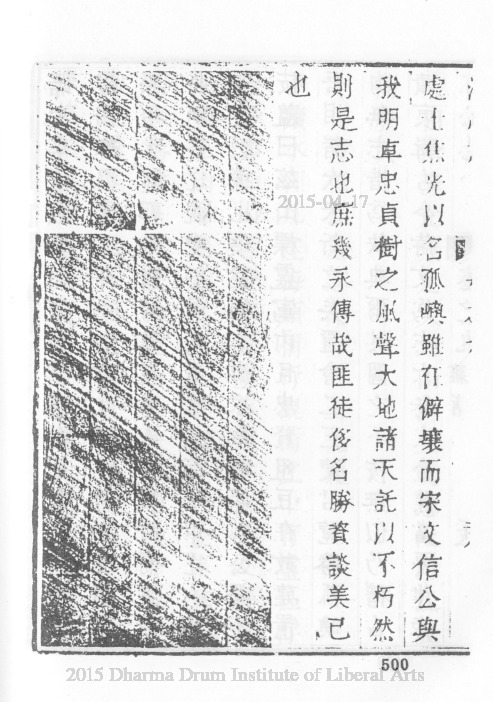 處士焦光以名孤嶼雖在僻壤而宋文信公與
我明卓忠貞樹之風聲大地諸天託以不朽然
則是志也庶幾永傳哉匪徒侈名勝資談美已
也
2015-04-17
500
2015 Dharma Drum Institute of Liberal Arts